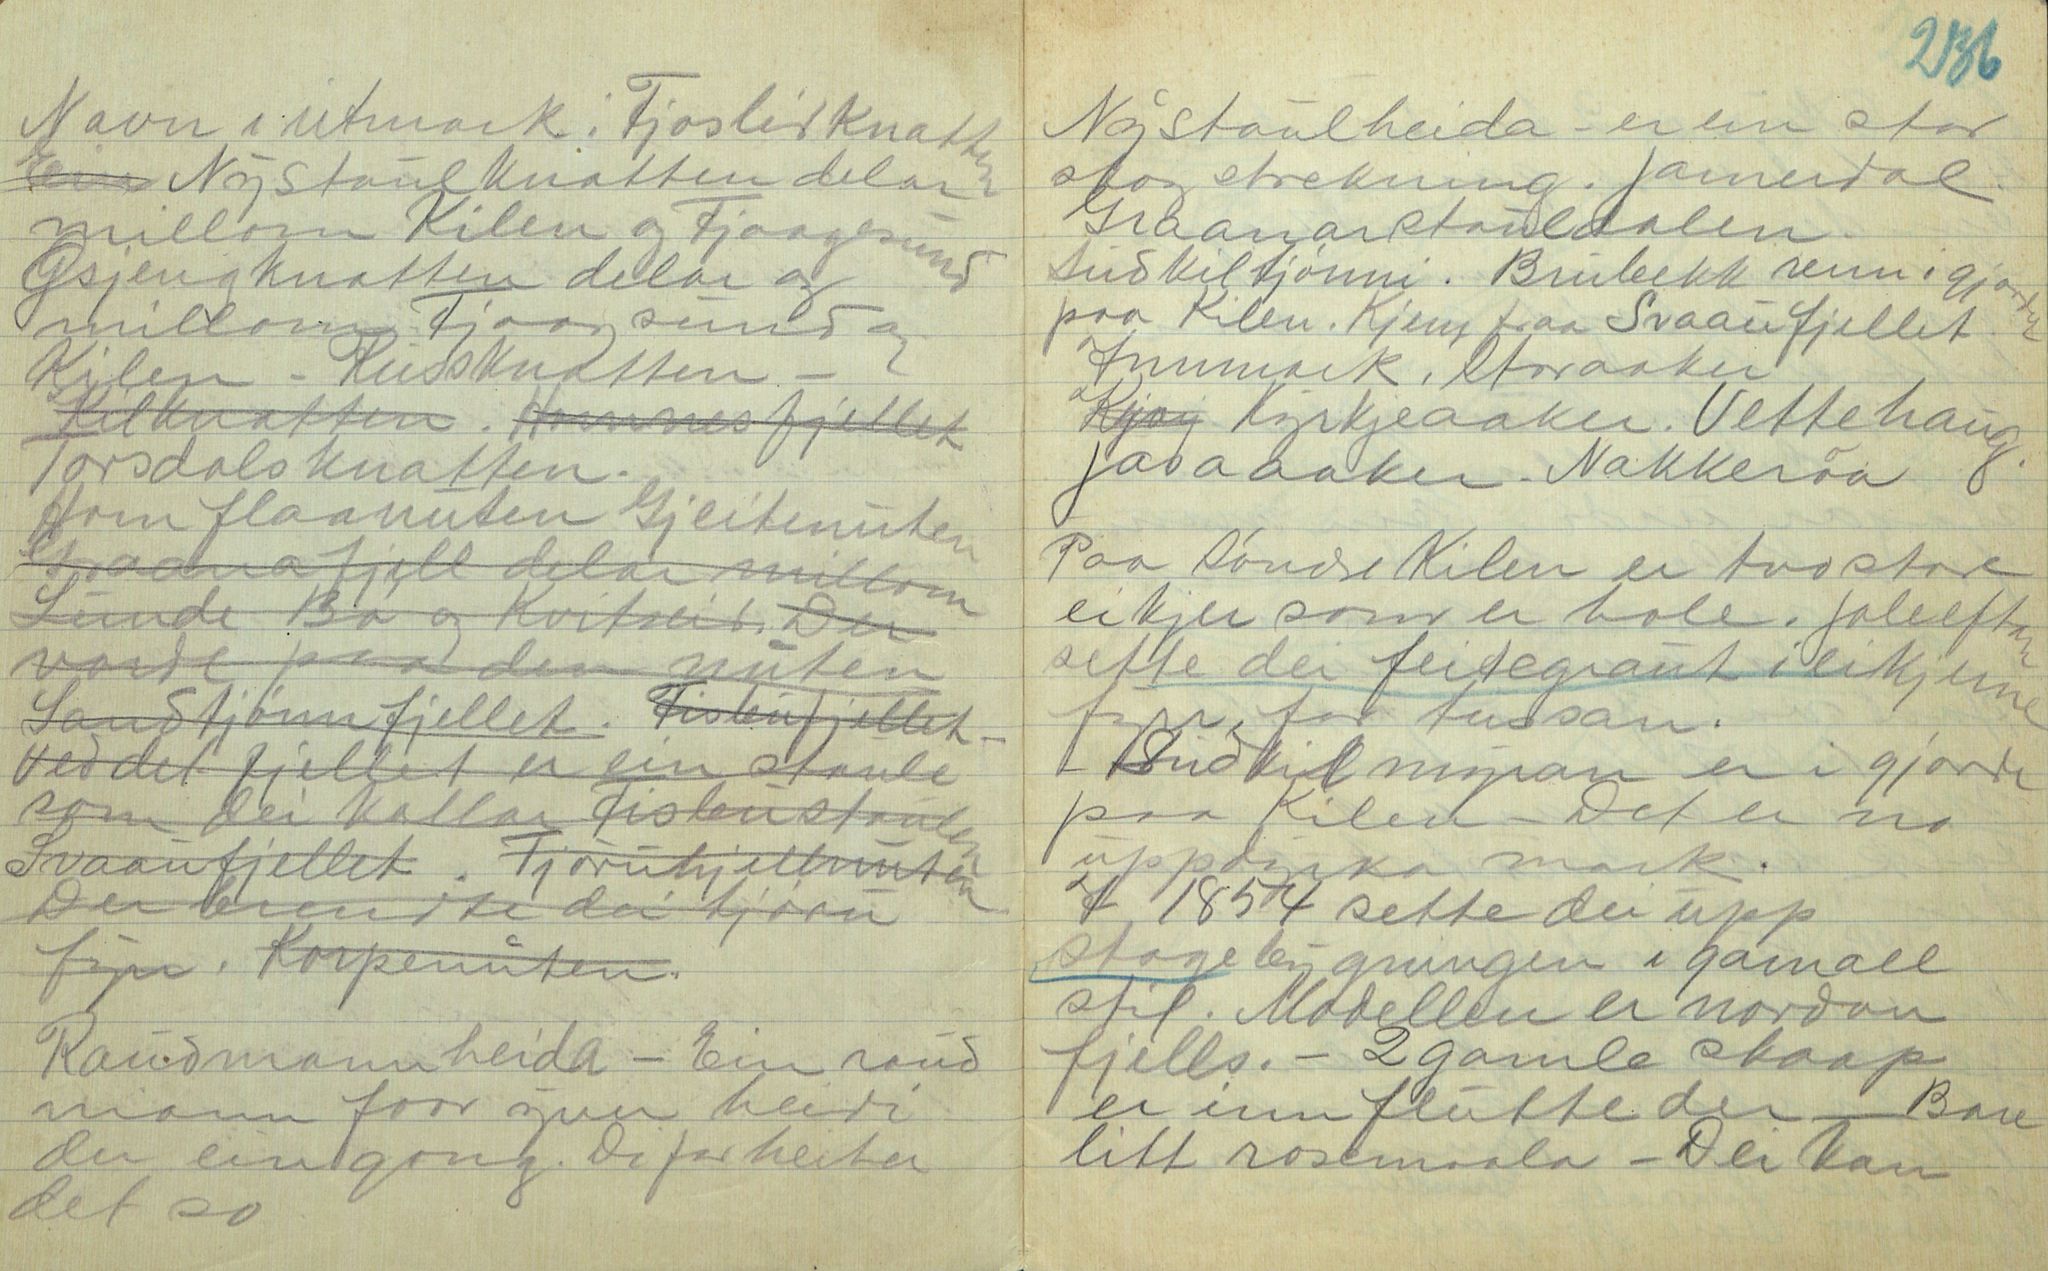 Navn i utmark. Fjoslidknatten
Ein Nystaulknatten delar
millom Kilen og Fjaagesund
Gsjengknatten delar og
millom Fjaagesund og
Kilen - Husknatten -
Kilknatten. Homnesfjellet
Torsdalsknatten.
Homflaanuten Gjeitenuten
Graanafjell delar millom
Lunde Bø og Kvitseid. Der
varde paa den nuten
Sandtjønnfjellet. Fiskufjellet -
Ved det fjellet er ein staule
som dei kallar Fiskustaulen
Svaaufjellet. Tjøruhjellnuten
Der brendte dei tjøru
fyrr. Korpenuten.
Raudmannheida - Ein raud
mann foor yver heidi
der ein gong. Difor heiter
det so
236
Nystaulheida - er ein stor
skog strekning. Jamerdal.
Graanarstauldalen.
Sudkiltjønni. Brubekk renn i gjorde
paa Kilen. Kjem fraa Svaaufjellet
Innmark. Storaaker
Kyrkjeaaker. Vettehaug.
Jasaaaker. Nakkerõa
Paa Søndre Kilen er tvo store
eikjer som er hole. Joleeftan
sette dei feitegraut i eikjerne
fyrr, for tussan.
- Sudkilmyran er i gjorde
paa Kilen - Det er no
uppdyrka mark.
I 1854 sette dei upp
stogebygningen i gamall
stil. Modellen er nordan
fjells. - 2 gamle skaap
er innflutte der - Bare
litt rosemaala - Dei kan